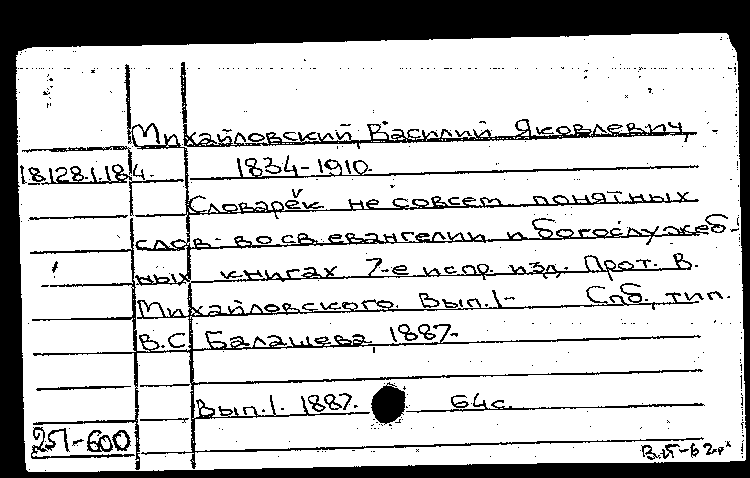 Михайловский, Василий Яковлевич,
18.128.1.184. 1834-1910.
Словарёк не совсем понятных
слов во св. евангелии и богослужеб-
ных книгах 7-е испр. изд. Прот. В.
Михайловского. Вып.1- Спб, тип.
В.С. Балашева, 1887-
Вып.1. 1887. 64с.
251-600